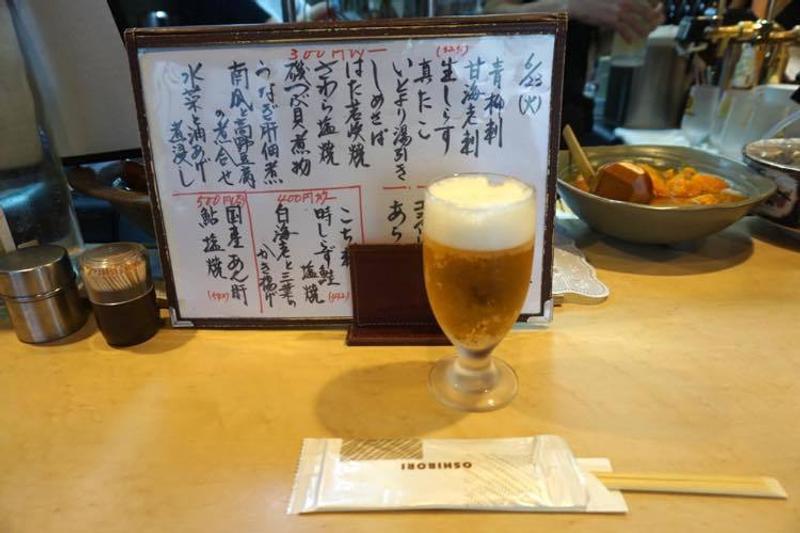 6/23(火)
300円均一
青柳刺
甘海老刺
生しらす
真たこ
いとより湯引き
しめさば
はた若狭焼
さわら塩焼
磯つぶ貝煮物
うなぎ肝佃煮
南瓜と高野豆腐
の煮合せ
水菜と油あげ
煮浸し
あら
400円均一
こち
時しらず鮭
塩焼
白海老と三葉の
かき揚げ
500円均一
国産あん肝
鮎塩焼
OSHIBORI